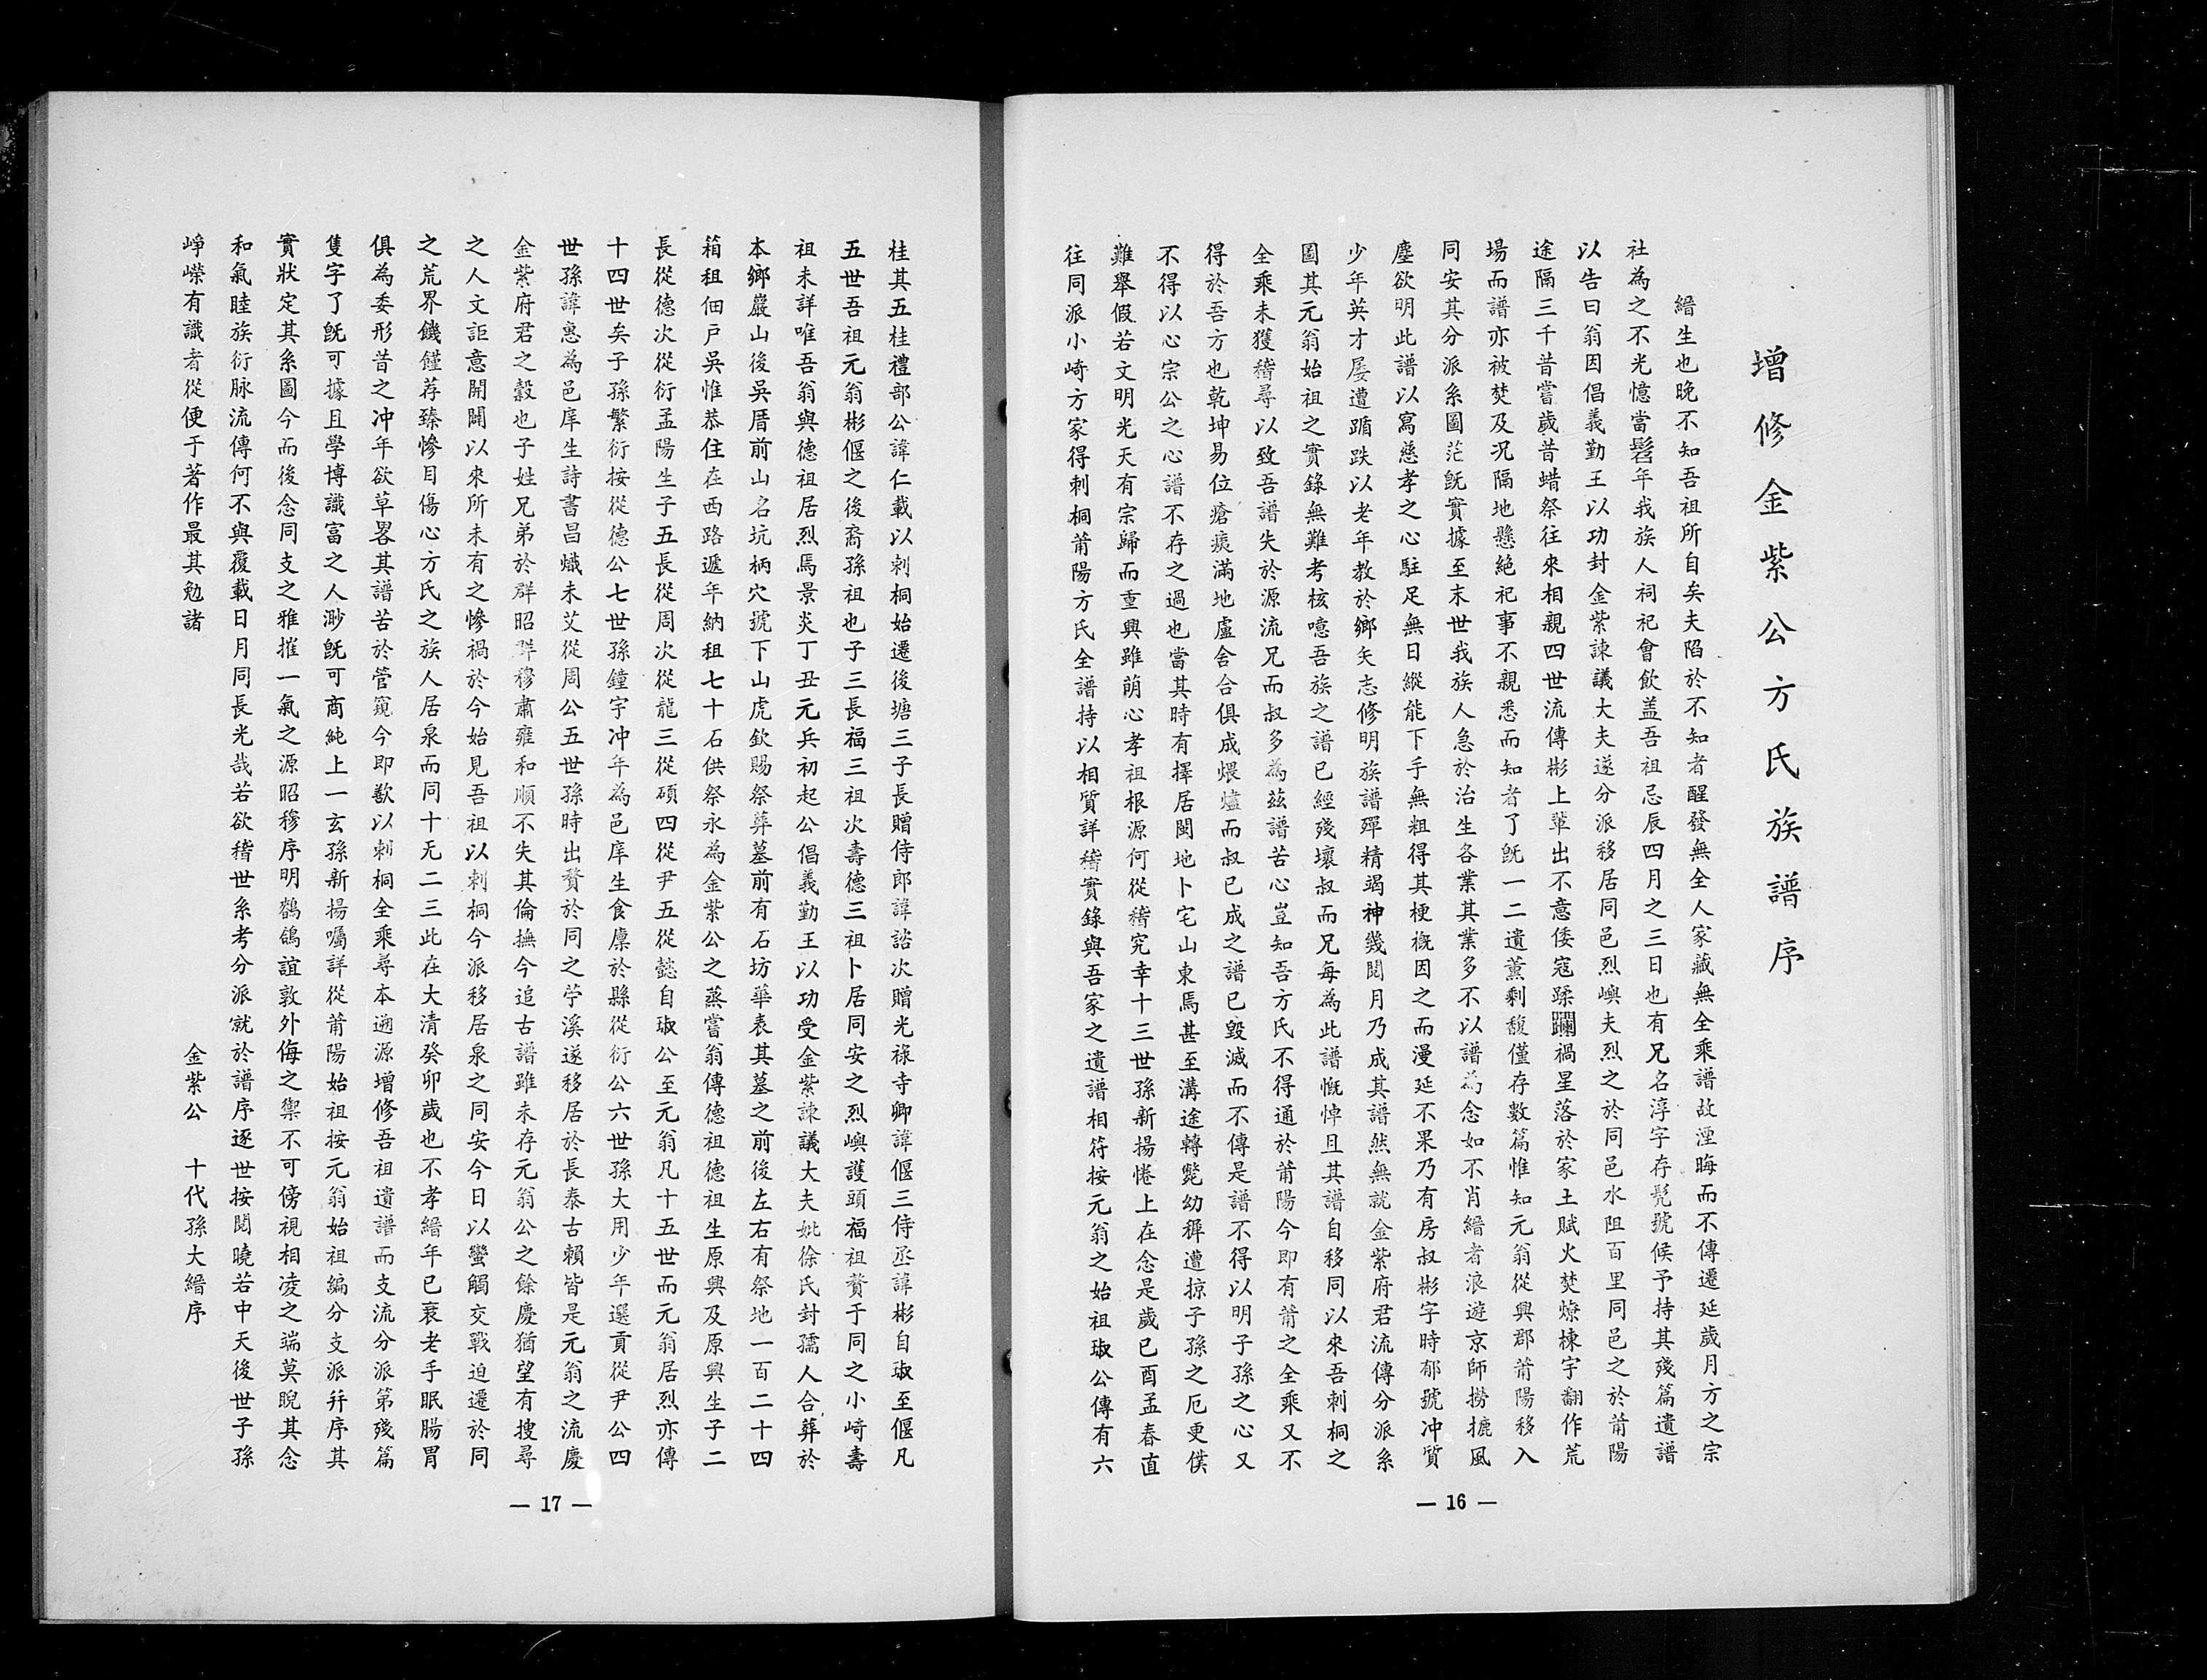 增修金紫公方氏族譜序
縉生也晚不知吾祖所自矣夫陷於不知者醒發無全人家藏無全乘譜故湮晦而不傳遷延歲月方之宗
社為之不光憶當髫年我族人祠祀會飲盖吾祖忌辰四月之三日也有兄名淳字存髡號候予持其殘篇遺譜
以告曰翁因倡義勤王以功封金紫諫議大夫遂分派移居同邑烈嶼夫烈之於同邑水阻百里同邑之於莆陽
途隔三千昔嘗歲昔蜡祭往來相親四世流傳彬上輩出不意倭寇蹂躪禍星落於家土賦火焚燎棟宇翻作荒
場而譜亦被焚及况隔地懸絶祀事不親悉而知者了旣一二遺薰剩馥僅存數篇惟知元翁從興郡莆陽移入
同安其分派系圖茫旣實據至末世我族人急於治生各業其業多不以譜為念如不肖縉者浪遊京師撈摝風
塵欲明此譜以寫慈孝之心駐足無日縱能下手無粗得其梗概因之而漫延不果乃有房叔彬字時郁號冲質
少年英才屡遭踲跌以老年教於鄉矢志修明族譜殫精竭神幾閱月乃成其譜然無就金紫府君流傳分派系
圖其元翁始祖之實錄無難考核噫吾族之譜已經殘壞叔而兄每為此譜慨悼且其譜自移同以來吾刺桐之
全乘未獲稽尋以致吾譜失於源流兄而叔多為茲譜苦心豈知吾方氏不得通於莆陽今即有莆之全乘又不
得於吾方也乾坤易位瘡痍滿地盧舍合俱成煨燼而叔已成之譜已毀滅而不傳是譜不得以明子孫之心又
不得以心宗公之心譜不存之過也當其時有擇居閩地卜宅山東焉甚至溝途轉斃幼穉遭掠子孫之厄更僕
難舉假若文明光天有宗歸而重興雖萌心孝祖根源何從稽究幸十三世孫新揚惓上在念是歲已酉孟春直
往同派小崎方家得刺桐莆陽方氏全譜持以相質詳稽實錄與吾家之遺譜相符按元翁之始祖琡公傳有六
— 16 —
桂其五桂禮部公諱仁載以刺桐始遷後塘三子長贈侍郎諱諮次贈光祿寺卿諱偃三侍丞諱彬自琡至偃凡
五世吾祖元翁彬偃之後裔孫祖也子三長福三祖次壽德三祖卜居同安之烈嶼護頭福祖贅于同之小崎壽
祖未詳唯吾翁與德祖居烈焉景炎丁丑元兵初起公倡義勤王以功受金紫諫議大夫妣徐氏封孺人合葬於
本鄉巖山後吳厝前山名坑柄穴號下山虎欽賜祭葬墓前有石坊華表其墓之前後左右有祭地一百二十四
箱租佃戶吳惟恭住在西路遞年納租七十石供祭永為金紫公之蒸嘗翁傳德祖德祖生原興及原興生子二
長從德次從衍孟陽生子五長從周次從龍三從碩四從尹五從懿自琡公至元翁凡十五世而元翁居烈亦傳
十四世矣子孫繁衍按從德公七世孫鐘宇冲年為邑庠生食廩於縣從衍公六世孫大用少年選貢從尹公四
世孫諱惠為邑庠生詩書昌熾未艾從周公五世孫時出贅於同之苧溪遂移居於長泰古賴皆是元翁之流慶
金紫府君之穀也子姓兄弟於群昭群穆肅雍和順不失其倫撫今追古譜雖未存元翁公之餘慶猶望有搜尋
之人文詎意開闢以來所未有之慘禍於今始見吾祖以刺桐今派移居泉之同安今日以蠻觸交戰迫遷於同
之荒界饑饉荐臻慘目傷心方氏之族人居泉而同十无二三此在大清癸卯歲也不孝縉年已衰老手眠腸胃
俱為委形昔之冲年欲草畧其譜苦於管窺今即歎以刺桐全乘尋本遡源增修吾祖遺譜而支流分派第殘篇
隻字了旣可據且學博識富之人渺旣可商純上一玄孫新揚囑詳從莆陽始祖按元翁始祖編分支派幷序其
實狀定其系圖今而後念同支之雅摧一氣之源昭穆序明鶺鴒誼敦外侮之禦不可傍視相凌之端莫睨其念
和氣睦族衍脉流傳何不與覆載日月同長光哉若欲稽世系考分派就於譜序逐世按閱曉若中天後世子孫
崢嶸有識者從便于著作最其勉諸
金紫公　十代孫大縉序
— 17 —